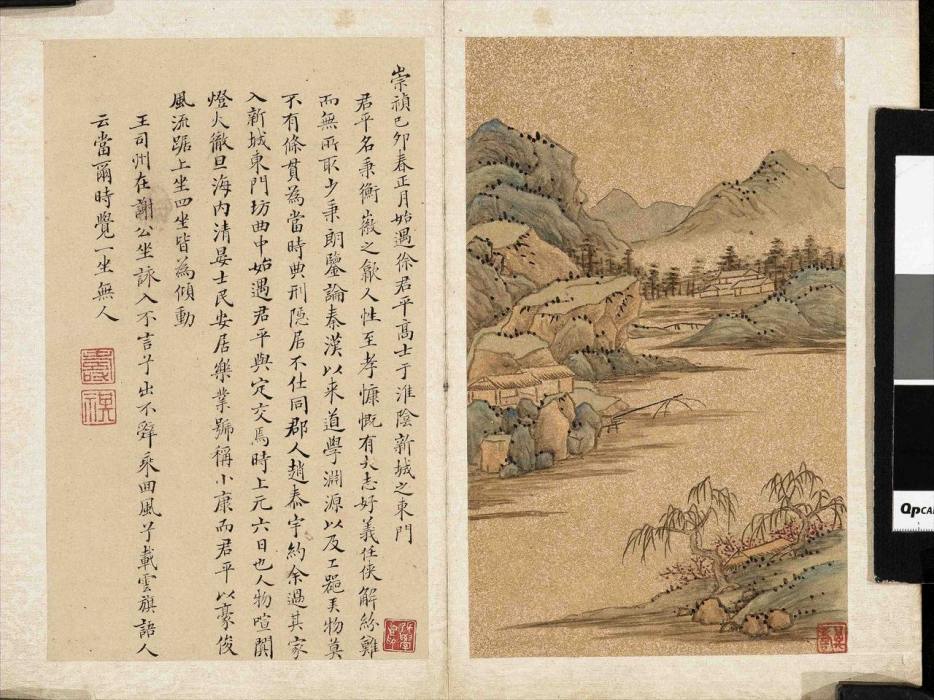 崇禎己卯春正月始遇徐君平高士于淮陰新城之東門
君平名秉衡徽之歙人性至孝慷慨有大志好義任俠解紛難
而無所取少秉朗鑒論秦漢以來道學淵源以及工藝美物莫
不有條貫為當時典刑隱居不仕同郡人趙泰宇約余過其家
入新城東門坊曲中始遇君平與定交焉時上元六日也人物喧闐
燈火徹旦海內清晏士民安居樂業號稱小康而君平以豪俊
風流踞上坐四坐皆為傾動
王司州在謝公坐詠入不言兮出不辭乘回風兮載雲旗語人
云當爾時覺一坐無人
壽祺
QpCA